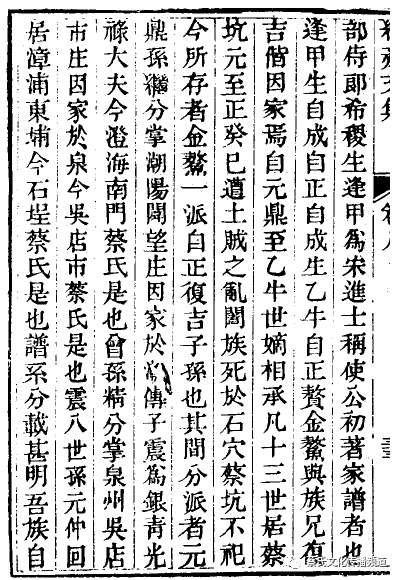 文集
卷八
部侍郎希稷生逢甲爲宋進士稱使公初著家譜者也
逢甲生自成自正自成生乙牛自正贅金鰲與族兄復
吉偕因家焉自元鼎至乙牛世嫡相承凡十三世居蔡
坑元至正癸巳遭土賊之亂闔族死於石穴蔡坑不祀
今所存者金鰲一派自正復吉子孫也其間分派者元
鼎孫繼分掌湖陽開望庄因家於傳子震爲銀青光
祿大夫今澄海南門蔡氏是也曾孫精分掌泉州吳店
市庄因家於泉今吳店市蔡氏是也震八世孫元仲回
居漳浦東埔今石埕蔡氏是也譜系分載甚明吾族自
蔡氏文化传播频道